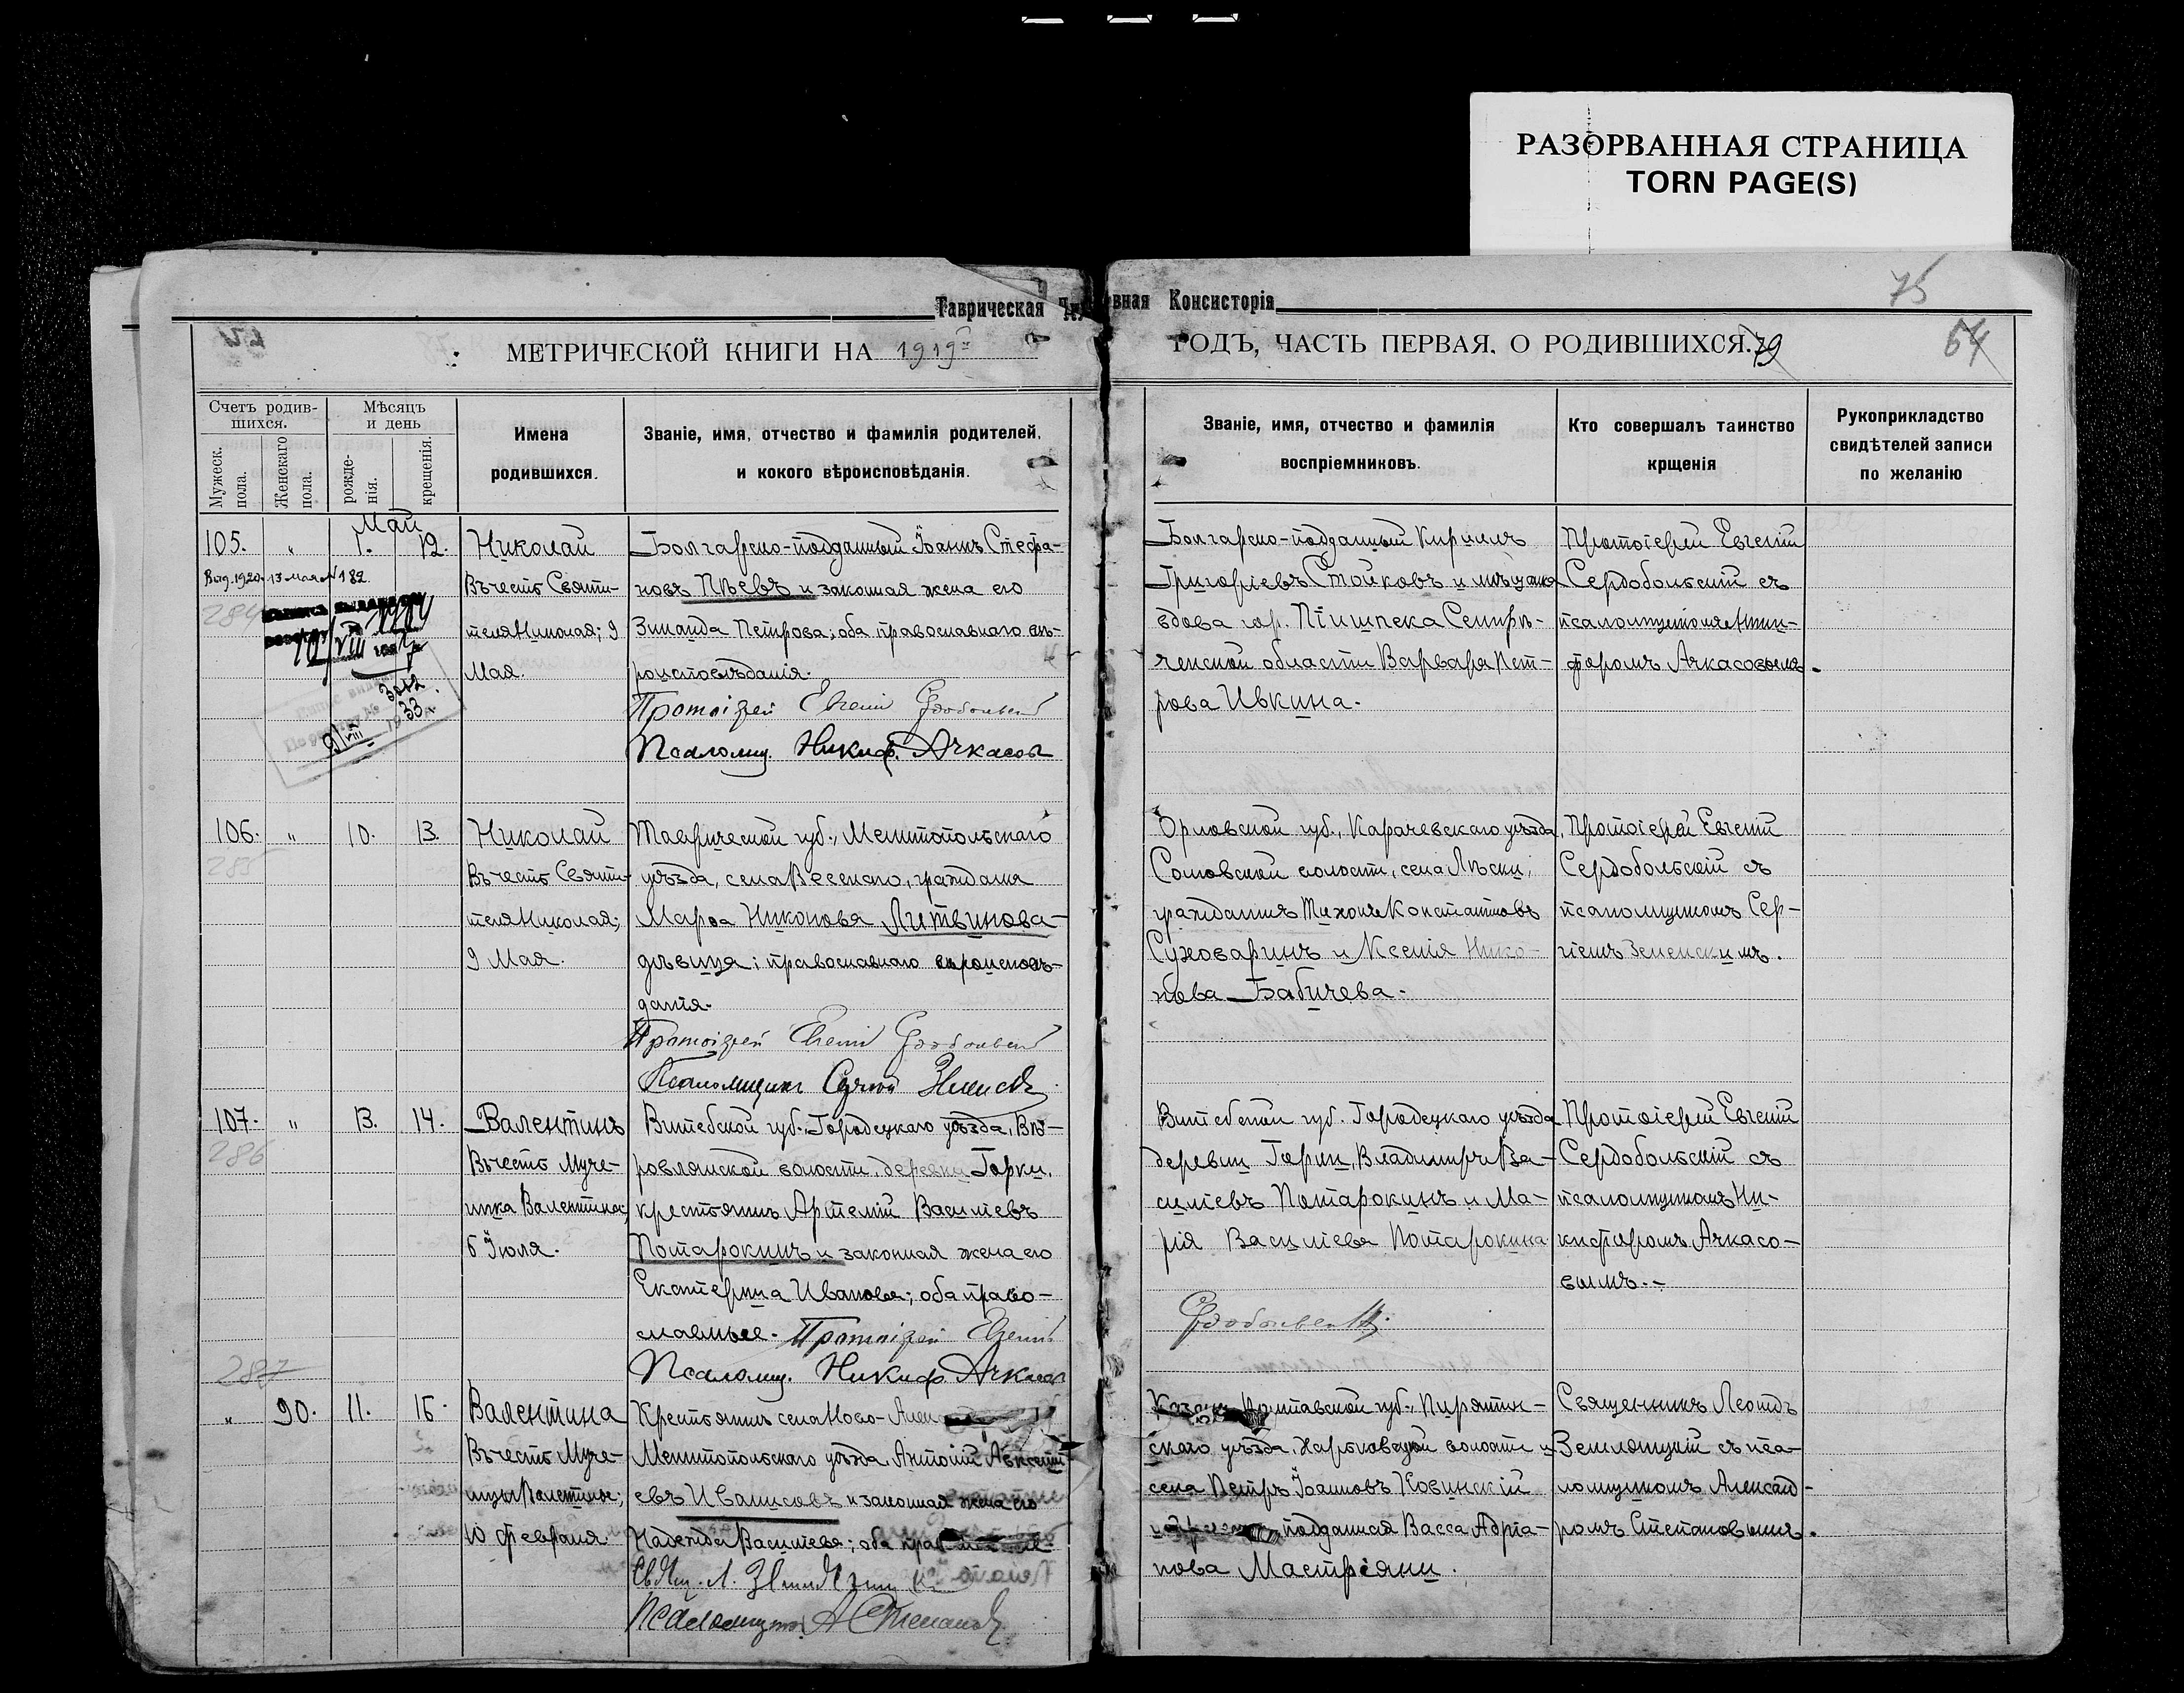 РАЗОРВАННАЯ СТРАНИЦА
TORN PAGE(S)
Таврическая
вная Консисторія
75
МЕТРИЧЕСКОЙ КНИГИ НА 1919й
ГОДЪ, ЧАСТЬ ПЕРВАЯ, О РОДИВШИХСЯ. 79
64
Счетъ родив-
шихся.
Мужеск.
пола.
Женскаго
пола.
Мѣсяцъ
и день
рожде-
нія.
крещенія.
Имена
родившихся.
Званіе, имя, отчество и фамилія родителей,
и кокого вѣроисповѣданія.
Званіе, имя, отчество и фамилія
воспріемниковъ.
Кто совершалъ таинство
крщенія
Рукоприкладство
свидѣтелей записи
по желанію
Май
105. " 1. 12.
Выд. 1920 г. 13 мая № 182.
284
Николай
Въ честь Святи-
теля Николая; 9
Мая.
Болгарско-подданный Іоаннъ Стефа-
новъ Пѣевъ и законная жена его
Зинаида Петрова; оба православнаго вѣ-
роисповѣданія.
Протоіерей Евгеній Сердобольскій
Псаломщ. Никиф. Ачкасовъ
Болгарско-подданный Кириллъ
Григоріевъ Стойковъ и мѣщанка
вдова гор. Пишпека Семирѣ-
ченской области Варвара Пет-
рова Ивкина.
Протоіерей Евгеній
Сердобольскій съ
псаломщикомъ Ники-
форомъ Ачкасовымъ.
106. " 10. 13.
285
Николай
Въ честь Святи-
теля Николая;
9 Мая.
Таврической губ., Мелитопольскаго
уѣзда, села Веселаго, гражданка
Марѳа Никонова Литвинова-
дѣвица; православнаго вѣроисповѣ-
данія.
Протоіерей Евгеній Сердобольскій
Псаломщикъ Сергій
Орловской губ., Карачевскаго уѣзда,
волости, села Лѣски,
гражданинъ Тихонъ Константиновъ
Суховаринъ и Ксенія Нико-
нова Бабичева.
Протоіерей Евгеній
Сердобольскій съ
псаломщикомъ Сер-
гіемъ Зеленскимъ.
107. " 13. 14.
286
Валентинъ
Въ честь Муче-
ника Валентина;
6 Іюля.
Витебской губ. Городецкаго уѣзда, Вѣ-
ровлянской волости, деревни Горки,
крестьянинъ Артемій Васильевъ
Потарокинъ и законная жена его
Екатерина Иванова; оба право-
славные. Протоіерей Евгеній
Псаломщ. Никиф. Ачкасовъ
Витебской губ. Городецкаго уѣзда
деревни Горки, Владимиръ Ва-
сильевъ Потарокинъ и Ма-
рія Васильева Потарокина
Сердобольскій.
Протоіерей Евгеній
Сердобольскій съ
псаломщикомъ Ни-
кифоромъ Ачкасо-
вымъ.-
287
" 90. 11. 16.
Валентина
Въ честь Муче-
ницы Валентины;
10 февраля.
Крестьянинъ села Ново-
Мелитопольскаго уѣзда, Антоній Авксенті-
евъ и законная жена его
Надежда Васильева; оба
Псаломщикъ А. Степановъ
Полтавской губ., Пирятин-
скаго уѣзда, Харьковецкой волости и
села Петръ Іоанновъ Ковинскій
подданная Васса Адріа-
нова Мастріяни.
Священникъ Леонидъ
съ пса-
ломщикомъ Александ-
ромъ Степановымъ.